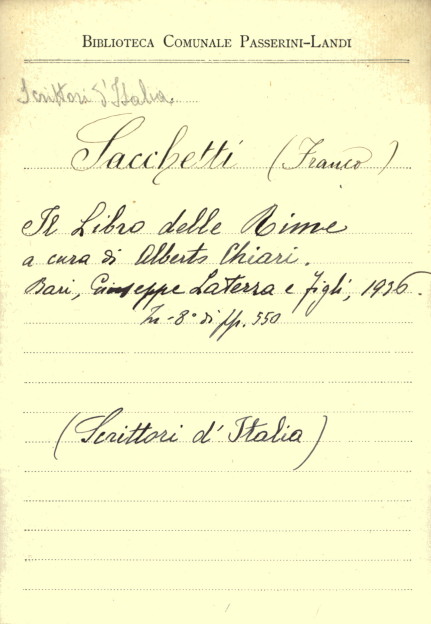 BIBLIOTECA COMUNALE PASSERINI-LANDI
Scrittori d'Italia.
Sacchetti (Franco)
Il Libro delle Rime
a cura di Alberto Chiari.
Bari, Giuseppe Laterza e figli, 1936.
In-8° di pp. 550
(Scrittori d'Italia)